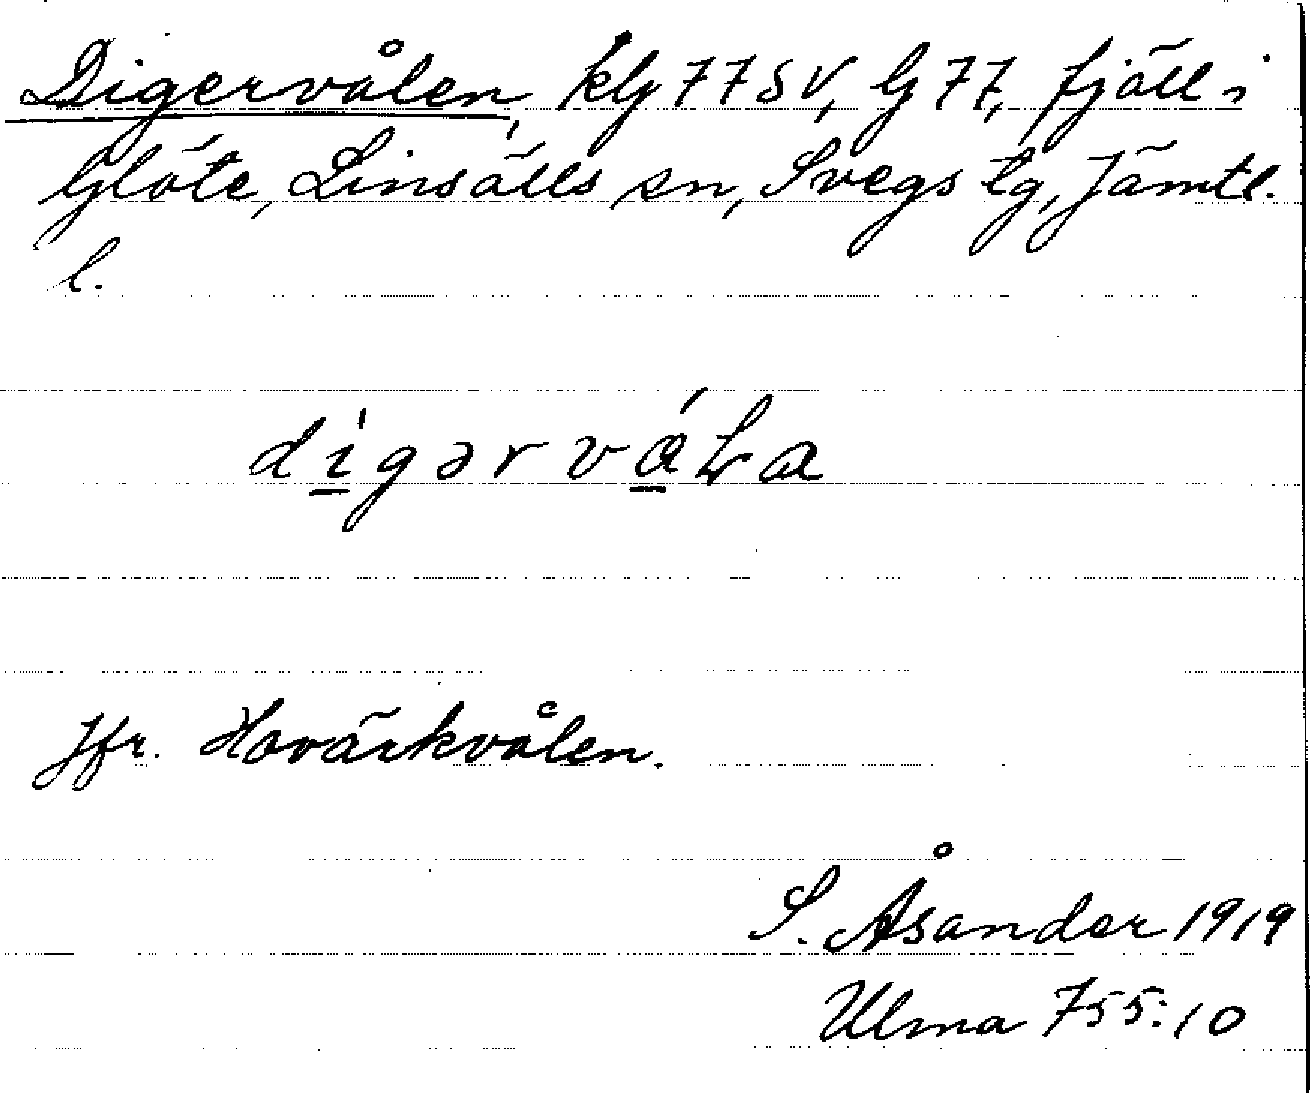 Digervålen, klg 77 SV, lg 77, fjäll i
Glöte, Linsälls sn, Svegs tg, Jämtl.
l.
dígərváLa
Jfr. Hovärkvålen.
S. Åsander 1919
Ulma 755:10